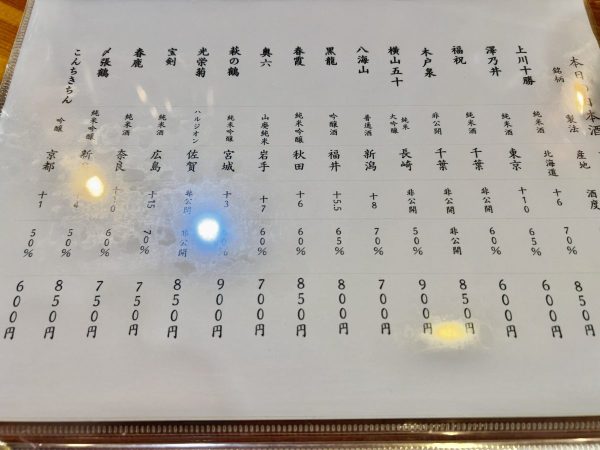 本日の日本酒
銘柄 製法 産地 酒度
上川十勝 純米酒 北海道 +6 70% 850円
澤乃井 純米酒 東京 +10 65% 600円
福祝 純米酒 千葉 非公開 60% 600円
木戸泉 非公開 千葉 非公開 非公開 850円
横山五十 純米大吟醸 長崎 非公開 50% 900円
八海山 普通酒 新潟 +8 70% 700円
黒龍 吟醸酒 福井 +5.5 65% 800円
春霞 純米吟醸 秋田 +6 60% 850円
奥六 山廃純米 岩手 +7 60% 700円
萩の鶴 純米吟醸 宮城 +3 900円
光栄菊 ハルジオン 佐賀 非公開 非公開 850円
宝剣 純米酒 広島 +15 70% 750円
春鹿 純米酒 奈良 +10 60% 750円
〆張鶴 純米吟醸 新 4 50% 850円
こんちきちん 吟醸 京都 +1 50% 600円